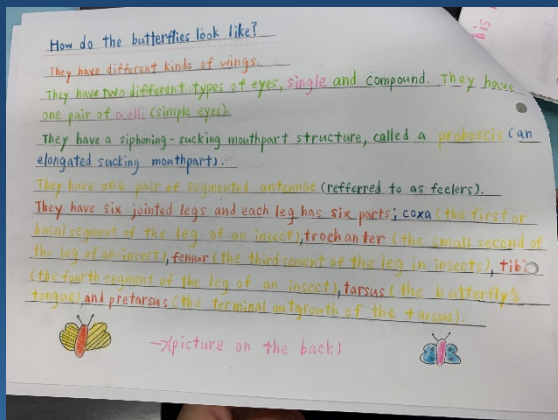 How do the butterflies look like?
They have different kinds of wings.
They have two different types of eyes, single and compound. They have
one pair of ocelli (simple eyes).
They have a siphoning-sucking mouthpart structure, called a proboscis (an
elongated sucking monthpart).
They have one pair of segmented antennae (refferred to as feelers).
They have six jointed legs and each leg has six parts; coxa (the first or
basal segment of the leg of an insect), trochanter (the small second of
the leg of an insect), femur (the third sement of the leg in insects), tibi
(the fourth segment of the leg of an insect), tarsus (the butterfly's
tongue) and pretarsus (the terminal outgrowth of the tarsus).
picture on the back
his